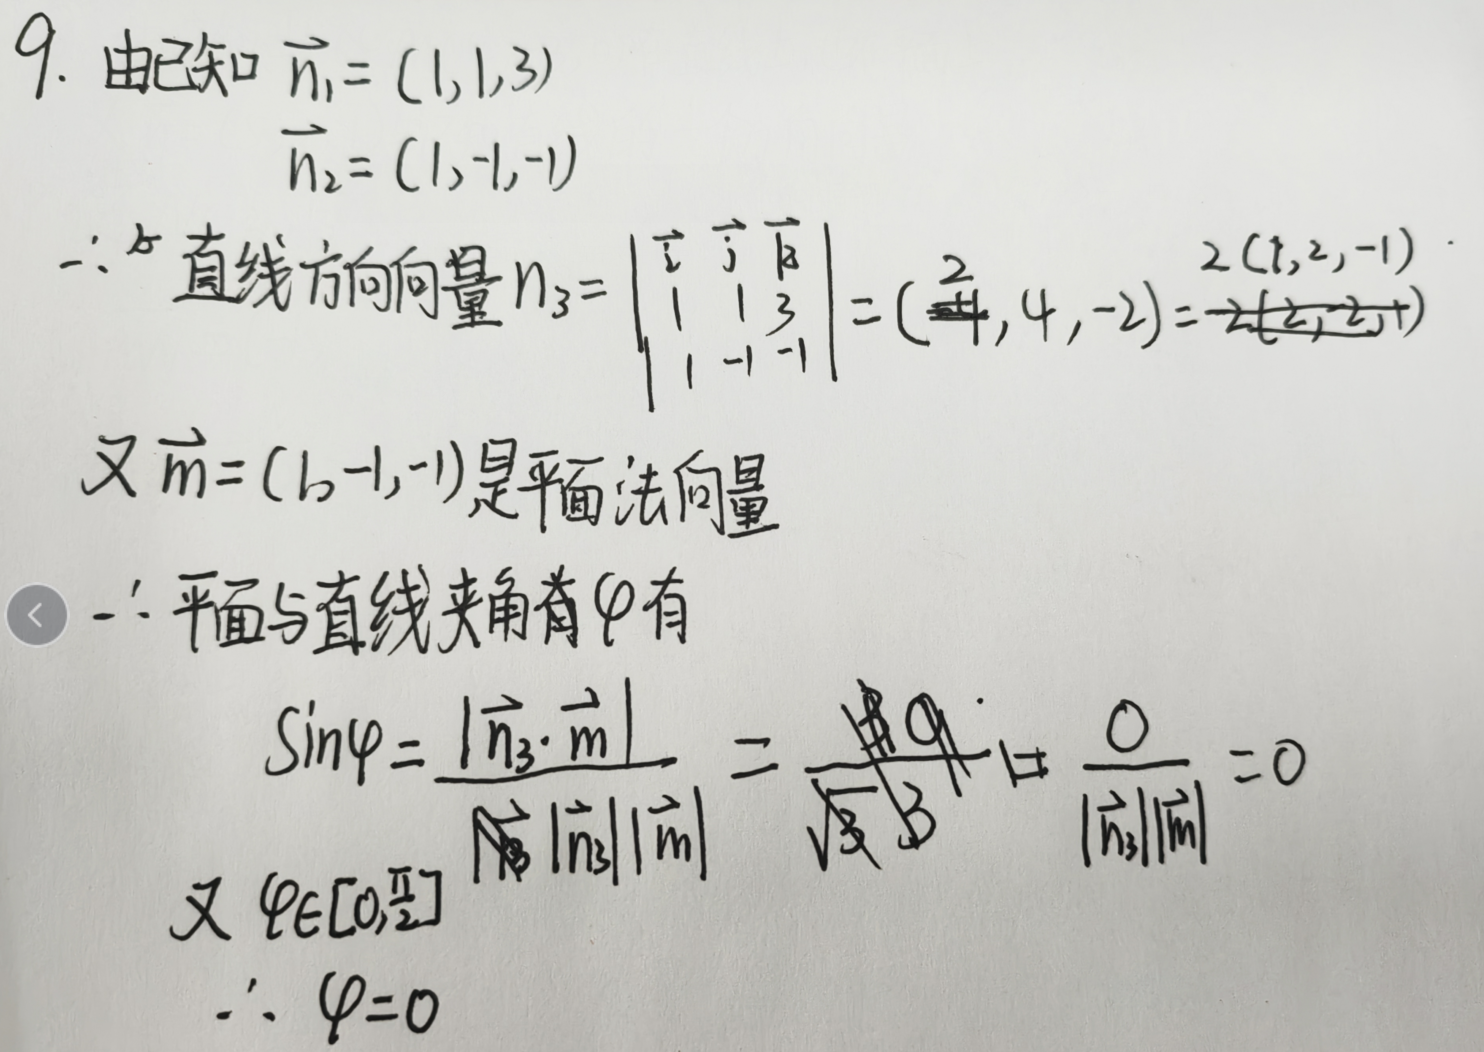 9. 由已知 n⃗₁ = (1,1,3)
n⃗₂ = (1,-1,-1)
∴ 直线方向向量 n₃ = | i⃗ j⃗ k⃗ ; 1 1 3 ; 1 -1 -1 | = (2, 4, -2) = 2(1,2,-1)
又 m⃗ = (1,-1,-1) 是平面法向量
∴ 平面与直线夹角 φ 有
Sinφ = |n⃗₃·m⃗| / |n⃗₃||m⃗| = 0 / |n⃗₃||m⃗| = 0
又 φ∈[0,π/2]
∴ φ=0